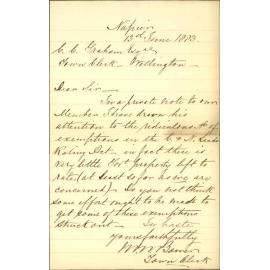 Napier
13th June 1893
C. C. Graham Esqre
Town Clerk Wellington
Dear Sir
In a private note to our
Member I have drawn his
attention to the ridiculous
exemptions in the
Rating Act - in fact there is
very little property left to
rate (at least so far as we are
concerned). Do you not think
some effort ought to be made to
get some of these exemptions
struck out. In haste
yours faithfully
Town Clerk